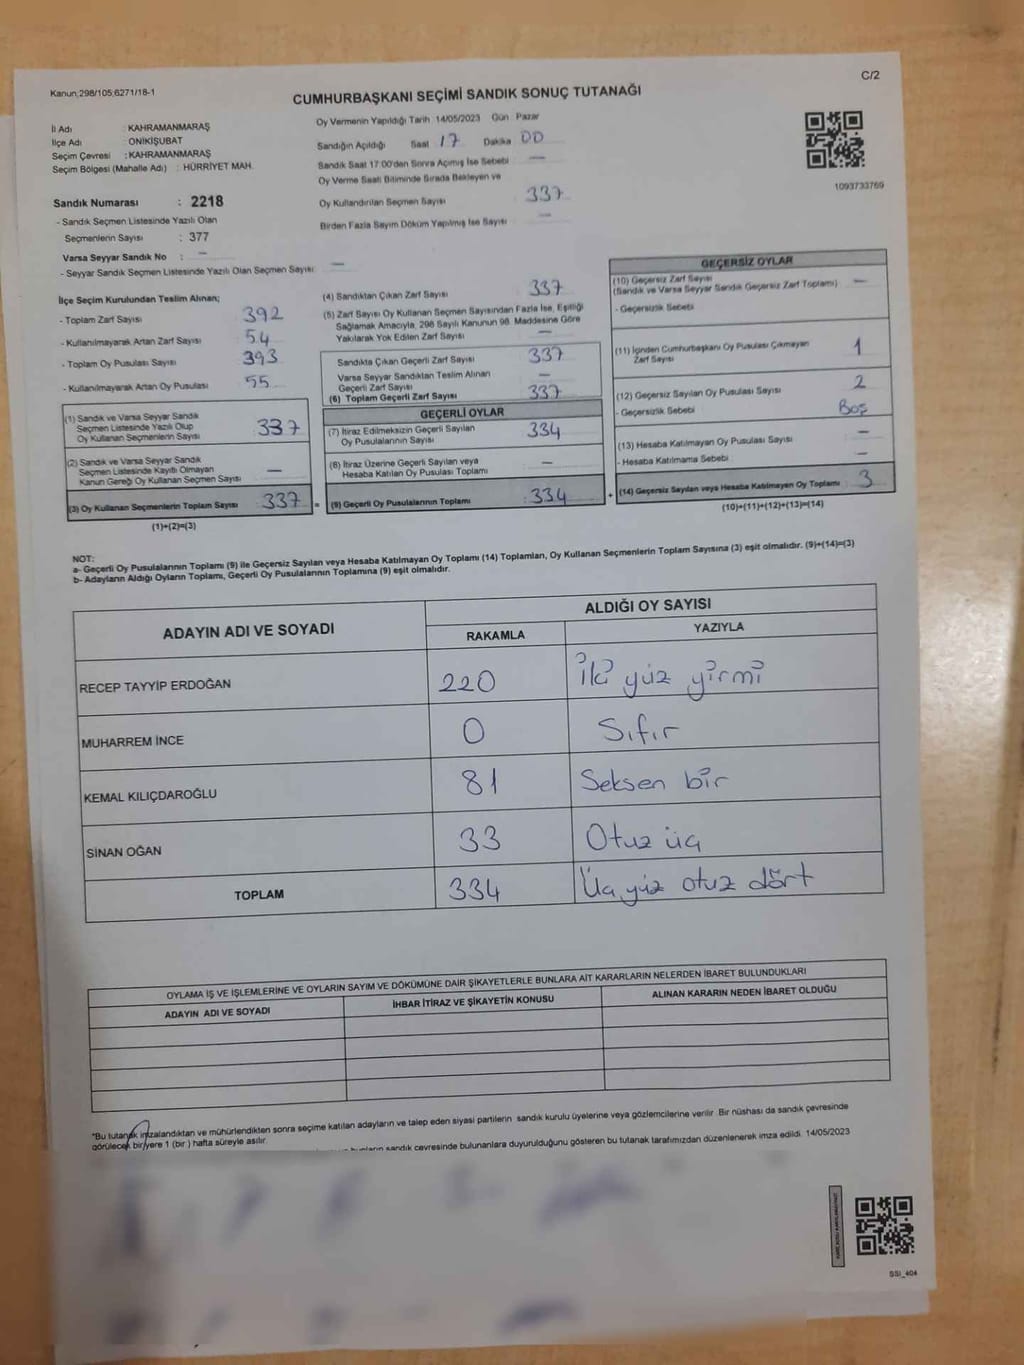 C/2
Kanun;298/105;6271/18-1
CUMHURBAŞKANI SEÇİMİ SANDIK SONUÇ TUTANAĞI
İl Adı : KAHRAMANMARAŞ
İlçe Adı : ONİKİŞUBAT
Seçim Çevresi : KAHRAMANMARAŞ
Seçim Bölgesi (Mahalle Adı) : HÜRRİYET MAH.
Oy Vermenin Yapıldığı Tarih 14/05/2023 Gün Pazar
Sandığın Açıldığı Saat 17 Dakika 00
Sandık Saat 17:00'den Sonra Açımış İse Sebebi —
Oy Verme Saati Bitiminde Sırada Bekleyen ve
Oy Kullandırılan Seçmen Sayısı 337
Birden Fazla Sayım Döküm Yapılmış İse Sayısı —
1093733769
Sandık Numarası : 2218
- Sandık Seçmen Listesinde Yazılı Olan
Seçmenlerin Sayısı : 377
Varsa Seyyar Sandık No : —
- Seyyar Sandık Seçmen Listesinde Yazılı Olan Seçmen Sayısı: —
İlçe Seçim Kurulundan Teslim Alınan;
- Toplam Zarf Sayısı 392
- Kullanılmayarak Artan Zarf Sayısı 54
- Toplam Oy Pusulası Sayısı 393
- Kullanılmayarak Artan Oy Pusulası 55
(1) Sandık ve Varsa Seyyar Sandık
Seçmen Listesinde Yazılı Olup
Oy Kullanan Seçmenlerin Sayısı 337
(2) Sandık ve Varsa Seyyar Sandık
Seçmen Listesinde Kayıtlı Olmayan
Kanun Gereği Oy Kullanan Seçmen Sayısı —
(3) Oy Kullanan Seçmenlerin Toplam Sayısı 337 =
(1)+(2)=(3)
(4) Sandıktan Çıkan Zarf Sayısı 337
(5) Zarf Sayısı Oy Kullanan Seçmen Sayısından Fazla İse, Eşitliği
Sağlamak Amacıyla, 298 Sayılı Kanunun 98. Maddesine Göre
Yakılarak Yok Edilen Zarf Sayısı —
Sandıkta Çıkan Geçerli Zarf Sayısı 337
Varsa Seyyar Sandıktan Teslim Alınan
Geçerli Zarf Sayısı —
(6) Toplam Geçerli Zarf Sayısı 337
GEÇERLİ OYLAR
(7) İtiraz Edilmeksizin Geçerli Sayılan
Oy Pusulalarının Sayısı 334
(8) İtiraz Üzerine Geçerli Sayılan veya
Hesaba Katılan Oy Pusulası Toplamı —
(9) Geçerli Oy Pusulalarının Toplamı : 334 +
GEÇERSİZ OYLAR
(10) Geçersiz Zarf Sayısı
(Sandık ve Varsa Seyyar Sandık Geçersiz Zarf Toplamı) —
- Geçersizlik Sebebi
(11) İçinden Cumhurbaşkanı Oy Pusulası Çıkmayan
Zarf Sayısı 1
(12) Geçersiz Sayılan Oy Pusulası Sayısı 2
- Geçersizlik Sebebi Boş
(13) Hesaba Katılmayan Oy Pusulası Sayısı —
- Hesaba Katılmama Sebebi : —
(14) Geçersiz Sayılan veya Hesaba Katılmayan Oy Toplamı : 3
(10)+(11)+(12)+(13)=(14)
NOT:
a- Geçerli Oy Pusulalarının Toplamı (9) ile Geçersiz Sayılan veya Hesaba Katılmayan Oy Toplamı (14) Toplamları, Oy Kullanan Seçmenlerin Toplam Sayısına (3) eşit olmalıdır. (9)+(14)=(3)
b- Adayların Aldığı Oyların Toplamı, Geçerli Oy Pusulalarının Toplamına (9) eşit olmalıdır.
ADAYIN ADI VE SOYADI
ALDIĞI OY SAYISI
RAKAMLA YAZIYLA
RECEP TAYYİP ERDOĞAN 220 İki yüz yirmi
MUHARREM İNCE 0 Sıfır
KEMAL KILIÇDAROĞLU 81 Seksen bir
SİNAN OĞAN 33 Otuz üç
TOPLAM 334 Üç yüz otuz dört
OYLAMA İŞ VE İŞLEMLERİNE VE OYLARIN SAYIM VE DÖKÜMÜNE DAİR ŞİKAYETLERLE BUNLARA AİT KARARLARIN NELERDEN İBARET BULUNDUKLARI
ADAYIN ADI VE SOYADI İHBAR İTİRAZ VE ŞİKAYETİN KONUSU ALINAN KARARIN NEDEN İBARET OLDUĞU
*Bu tutanak imzalandıktan ve mühürlendikten sonra seçime katılan adayların ve talep eden siyasi partilerin sandık kurulu üyelerine veya gözlemcilerine verilir. Bir nüshası da sandık çevresinde
görülecek bir yere 1 (bir ) hafta süreyle asılır.
bunların sandık çevresinde bulunanlara duyurulduğunu gösteren bu tutanak tarafımızdan düzenlenerek imza edildi. 14/05/2023
SSI_404